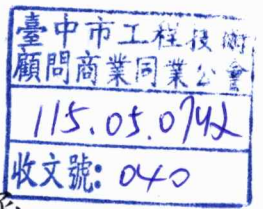 臺中市工程技術
顧問商業同業公會
115.05.07
收文號: 040